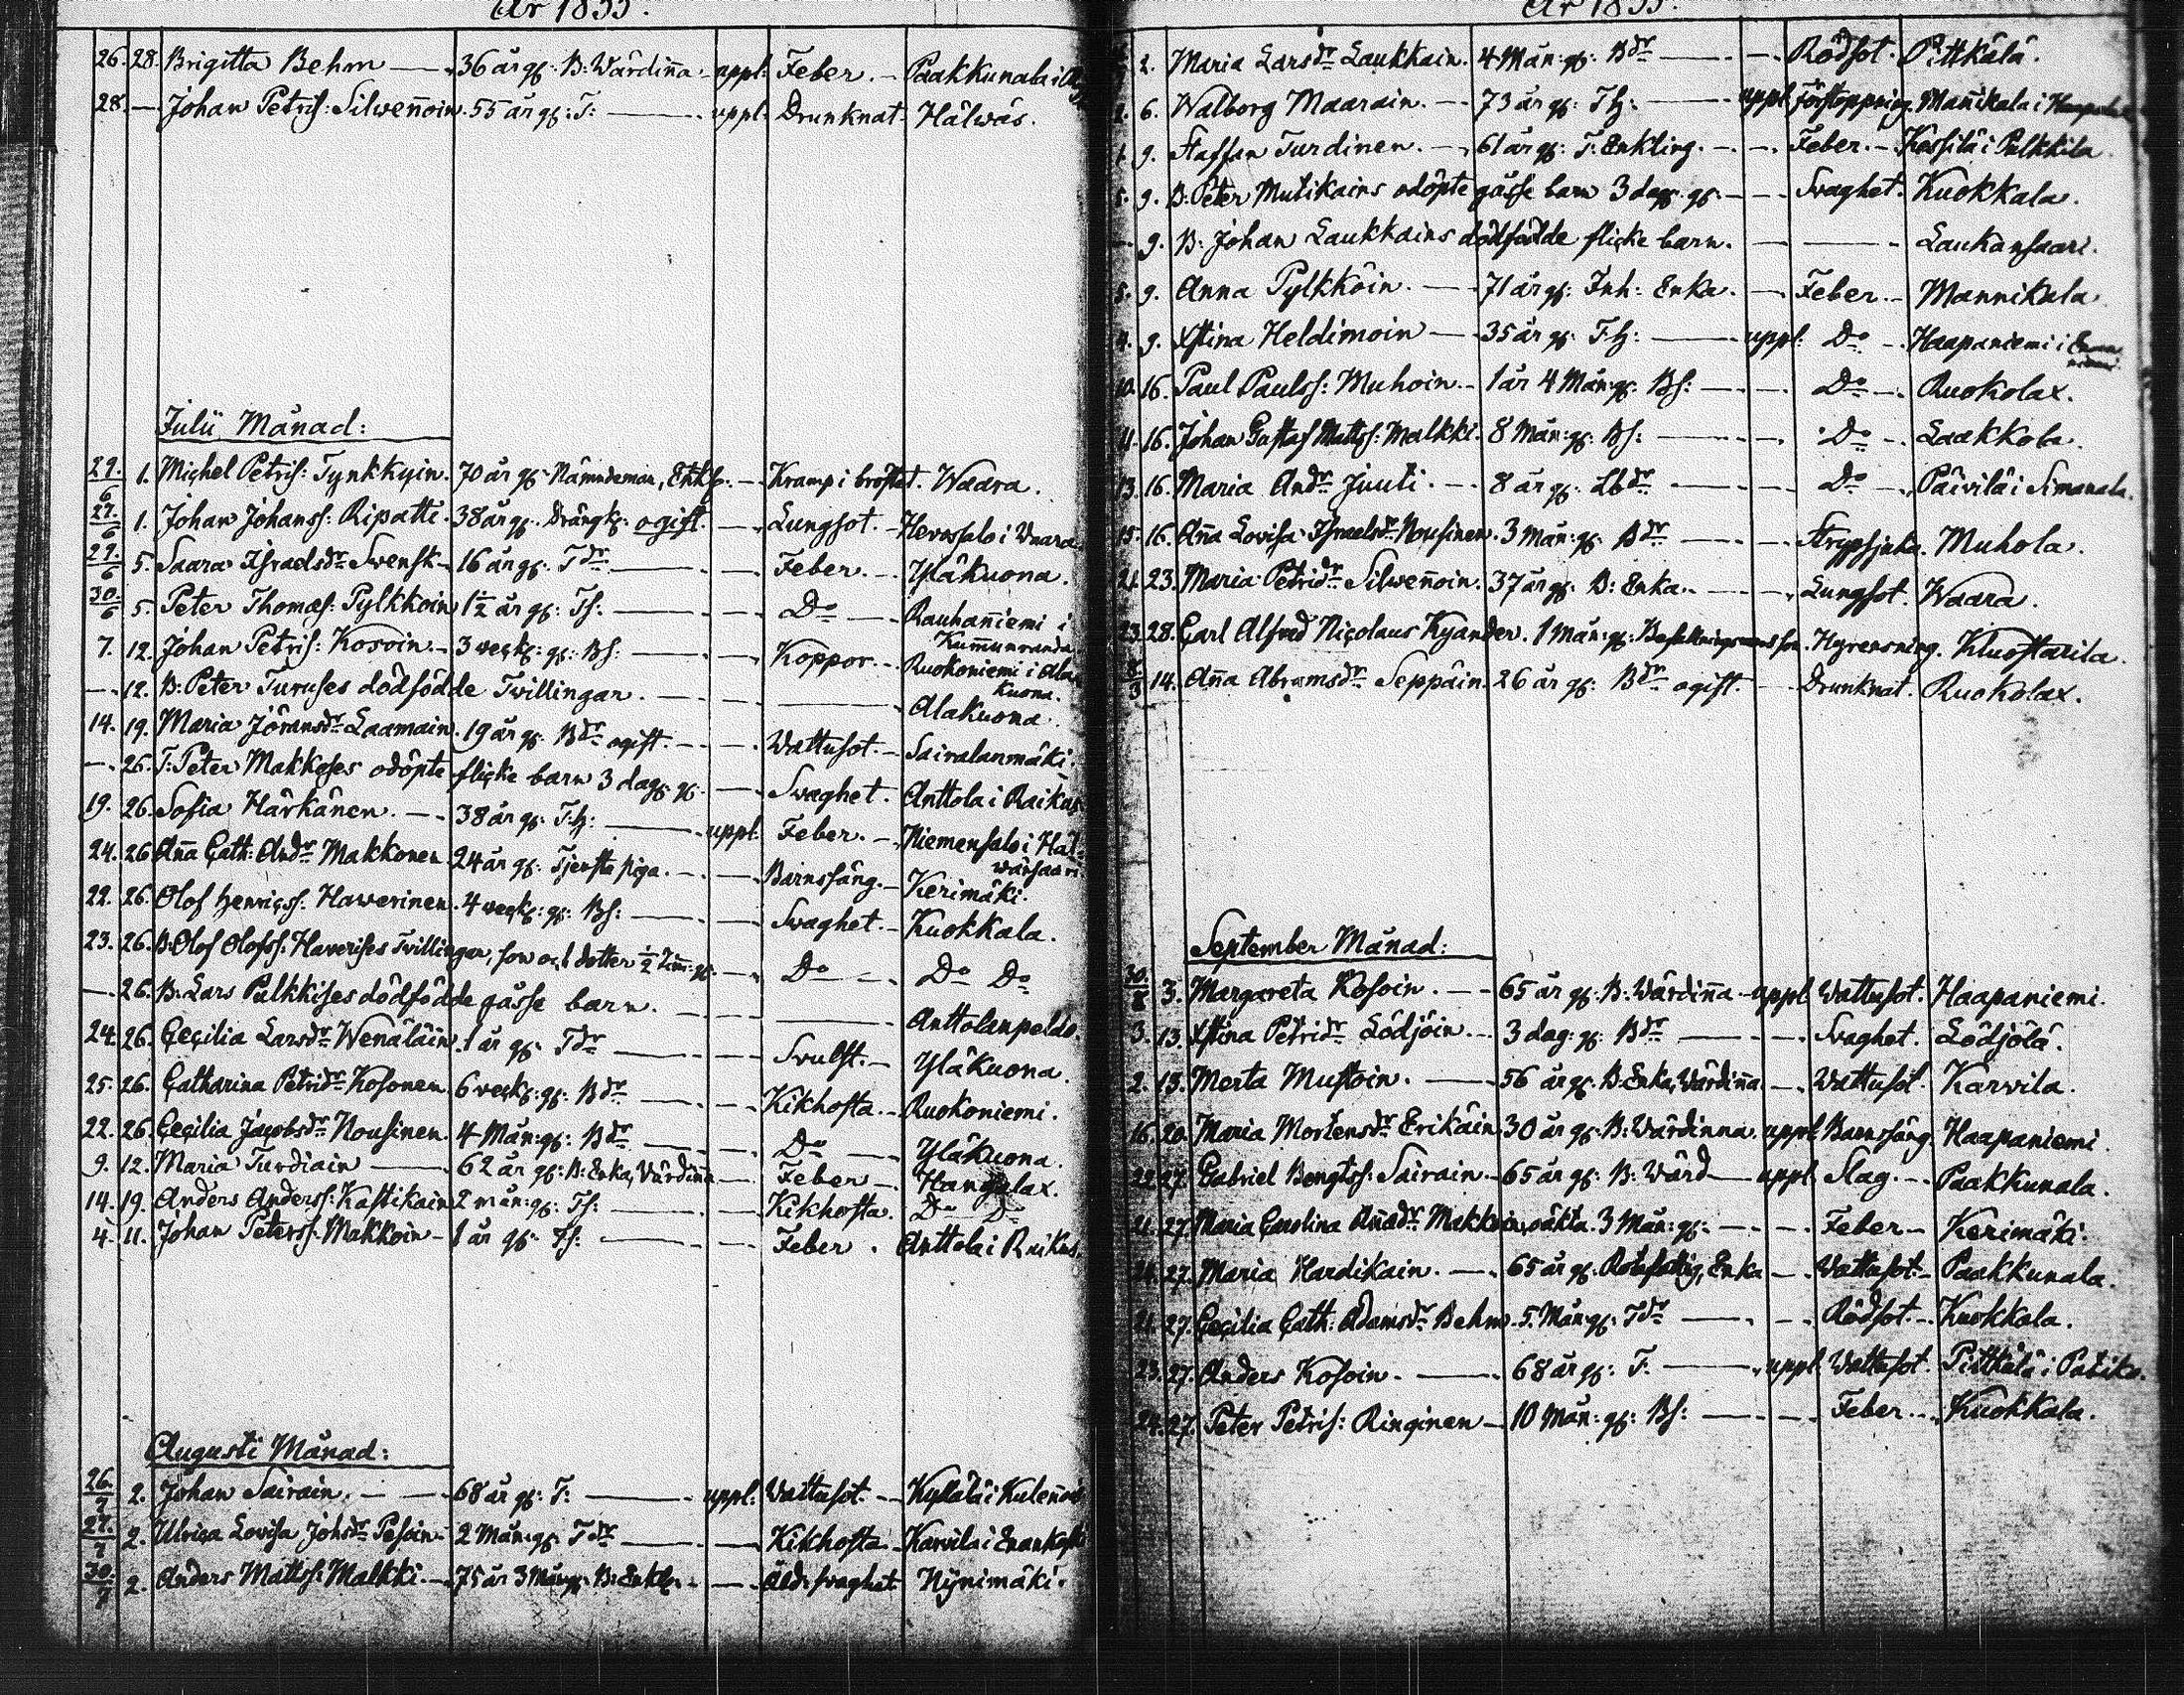 År 1833.
26. 28. Brigitta Behm — 36 år g: B: Wärdiña — uppl: Feber. — Paakkunala i
28. — Johan Petris: Silweñoin. 55 år g: T: — uppl: Drunknat. Hälwäs.
Julii Månad:
29/6 1. Michel Petris: Tynkkyin. 70 år g: Nämndeman, Enkl. — Kramp i bröstet. Waara.
27/6 1. Johan Johanss: Ripatti. 38 år g: Drängk: ogift. — Lungsot. — Hevossalo i Waara
29/6 5. Saara Israelsdr Svensk — 16 år g: Tdr — Feber. — Yläkuona.
30/6 5. Peter Thomæs: Pylkkoin 1½ år g: Ts: — Do — Rauhañiemi i
Kum̄unranda
7. 12. Johan Petris: Kosoin. — 3 weck: g: Bs: — Koppor. — Ruokoniemi i Ala-
kuona.
— 12. B: Peter Turuses dödfödde Tvillingar. — Alakuona.
14. 19. Maria Jöransdr Laamain. 19 år g: Bdr ogift. — Wattusot. — Sairalanmäki.
— 26. T: Peter Makkoses odöpte flicke barn 3 dag: g: — Svaghet. Anttola i Raikus
19. 26. Sofia Härkänen. — 38 år g: Th: — uppl: Feber. — Niemensalo i Häl-
wäsaari
24. 26. Aña Cath: Andr Makkonen. 24 år g: Tjenste piga. — Barnsäng. — Kerimäki.
22. 26. Olof Henricss: Hawerinen. 4 weck: g: Bs: — Svaghet. — Kuokkala.
23. 26. B: Olof Olofss: Haverises Tvillingar, son och dotter ½ Tim: g: — Do — Do Do
— 26. B: Lars Pulkkises dödfödde gåsse barn. — Anttolanpeldo.
24. 26. Cecilia Larsdr Wenäläin. 1 år g: Tdr — Svulst. — Yläkuona.
25. 26. Catharina Petridr Kosonen. 6 weck: g: Bdr — Kikhosta. — Ruokoniemi.
22. 26. Cecilia Jacobsdr Nousinen. 4 Mån: g: Bdr — Do — Yläkuona.
9. 12. Maria Turdiain — 62 år g: B: Enka, Värdiña — Feber — Hangulax.
14. 19. Anders Anderss: Kastikain 2 mån: g: Ts: — Kikhosta. Do Do
4. 11. Johan Peterss: Makkoin — 1 år g: Ts: — Feber. Anttola i Raikus.
Augusti Månad:
26/7 2. Johan Sairain. — 68 år g: T: — uppl: Wattusot. — Kyllälä i Kuleñoi
27/7 2. Ulrica Lovisa Johsdr Pesoin — 2 Mån: g: Tdr — Kikhosta — Karvila i
30/7 2. Anders Matts: Malkki. — 75 år 3 Mån g: B: Enkl: — Åld: svaghet Nynimäki.
År 1833.
2. Maria Larsdr Laukkain. 4 Mån: g: Bdr — Rödsot. Pittkälä.
6. Walborg Maarain. — 73 år g: Th: — uppl: förstoppning. Mañikala i
9. Staffan Turdinen. — 61 år g: T: Enkling. — Feber. — Kossilä i Pulkkila.
9. B: Peter Mutikains odöpte gåsse barn 3 dag: g: — Svaghet. Kuokkala.
9. B: Johan Laukkains dödfödde flicke barn. — Laukansaari.
9. Anna Pylkköin. — 71 år g: Inh: Enka. — Feber. — Mannikala.
9. Xstina Heldimoin — 35 år g: Th: — uppl: Do — Haapaniemi i
10. 16. Paul Paulss: Muhoin. — 1 år 4 Mån: g: Bs: — Do — Ruokolax.
11. 16. Johan Gustaf Matts: Malkki. 8 Mån: g: Bs: — Do — Laakkola.
13. 16. Maria Andr Juuti. — 8 år g: Lbdr — Do — Päivilä i Simanala.
15. 16. Aña Lovisa Israelsdr Nousinen. 3 Mån: g: Bdr — Strypsjuka. Muhola.
21. 23. Maria Petridr Silweñoin. 37 år g: B: Enka. — Lungsot. Waara.
23. 28. Carl Alfred Nicolaus Kyander. 1 Mån: g: Befallningsmans son. Hyrensning. Kluostarila.
14. Aña Abramsdr Seppäin. 26 år g: Bdr ogift. — Drunknat. Ruokolax.
September Månad:
30/8 3. Margareta Kosoin. — 65 år g: B: Wärdiña. — uppl: Wattusot. Haapaniemi.
3. 13. Xstina Petridr Lödjöin. — 3 dag: g: Bdr — Svaghet. Lödjölä.
2. 13. Merta Mustoin. — 56 år g: B: Enka, Wärdiña — Wattusot. Karvila.
16. 20. Maria Mortensdr Erikäin 30 år g: B: Wärdinna. uppl: Barnsäng. Haapaniemi
22. 27. Gabriel Bengts: Sairain. — 65 år g: B: Wärd — uppl: Slag. — Paakkunala.
21. 27. Maria Carolina Añadr Makkoin, oäkta. 3 Mån: g: — Feber — Kerimäki.
24. 27. Maria Hardikain. — 65 år g: Rotefattig, Enka — Wattusot. — Paakkunala.
21. 27. Cecilia Cath: Adamsdr Behm. 5. Mån: g: Tdr — Rödsot. — Kuokkala.
23. 27. Anders Kosoin. — 68 år g: T: — uppl: Wattusot. Pittkälä i
24. 27. Peter Petris: Ringinen — 10 Mån: g: Bs: — Feber. — Kuokkala.